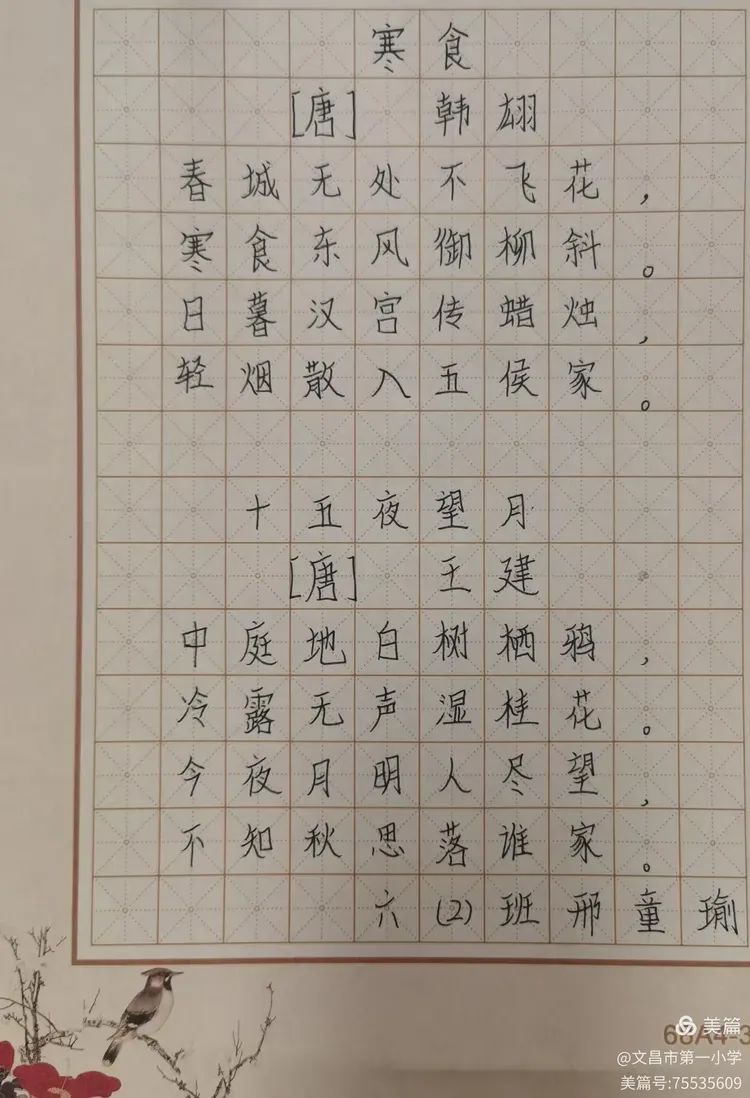 寒食
[唐] 韩翃
春城无处不飞花，
寒食东风御柳斜。
日暮汉宫传蜡烛，
轻烟散入五侯家。
十五夜望月
[唐] 王建
中庭地白树栖鸦，
冷露无声湿桂花。
今夜月明人尽望，
不知秋思落谁家。
六(2)班邢童瑜
68A4-3
美篇
@文昌市第一小学
美篇号:75535609